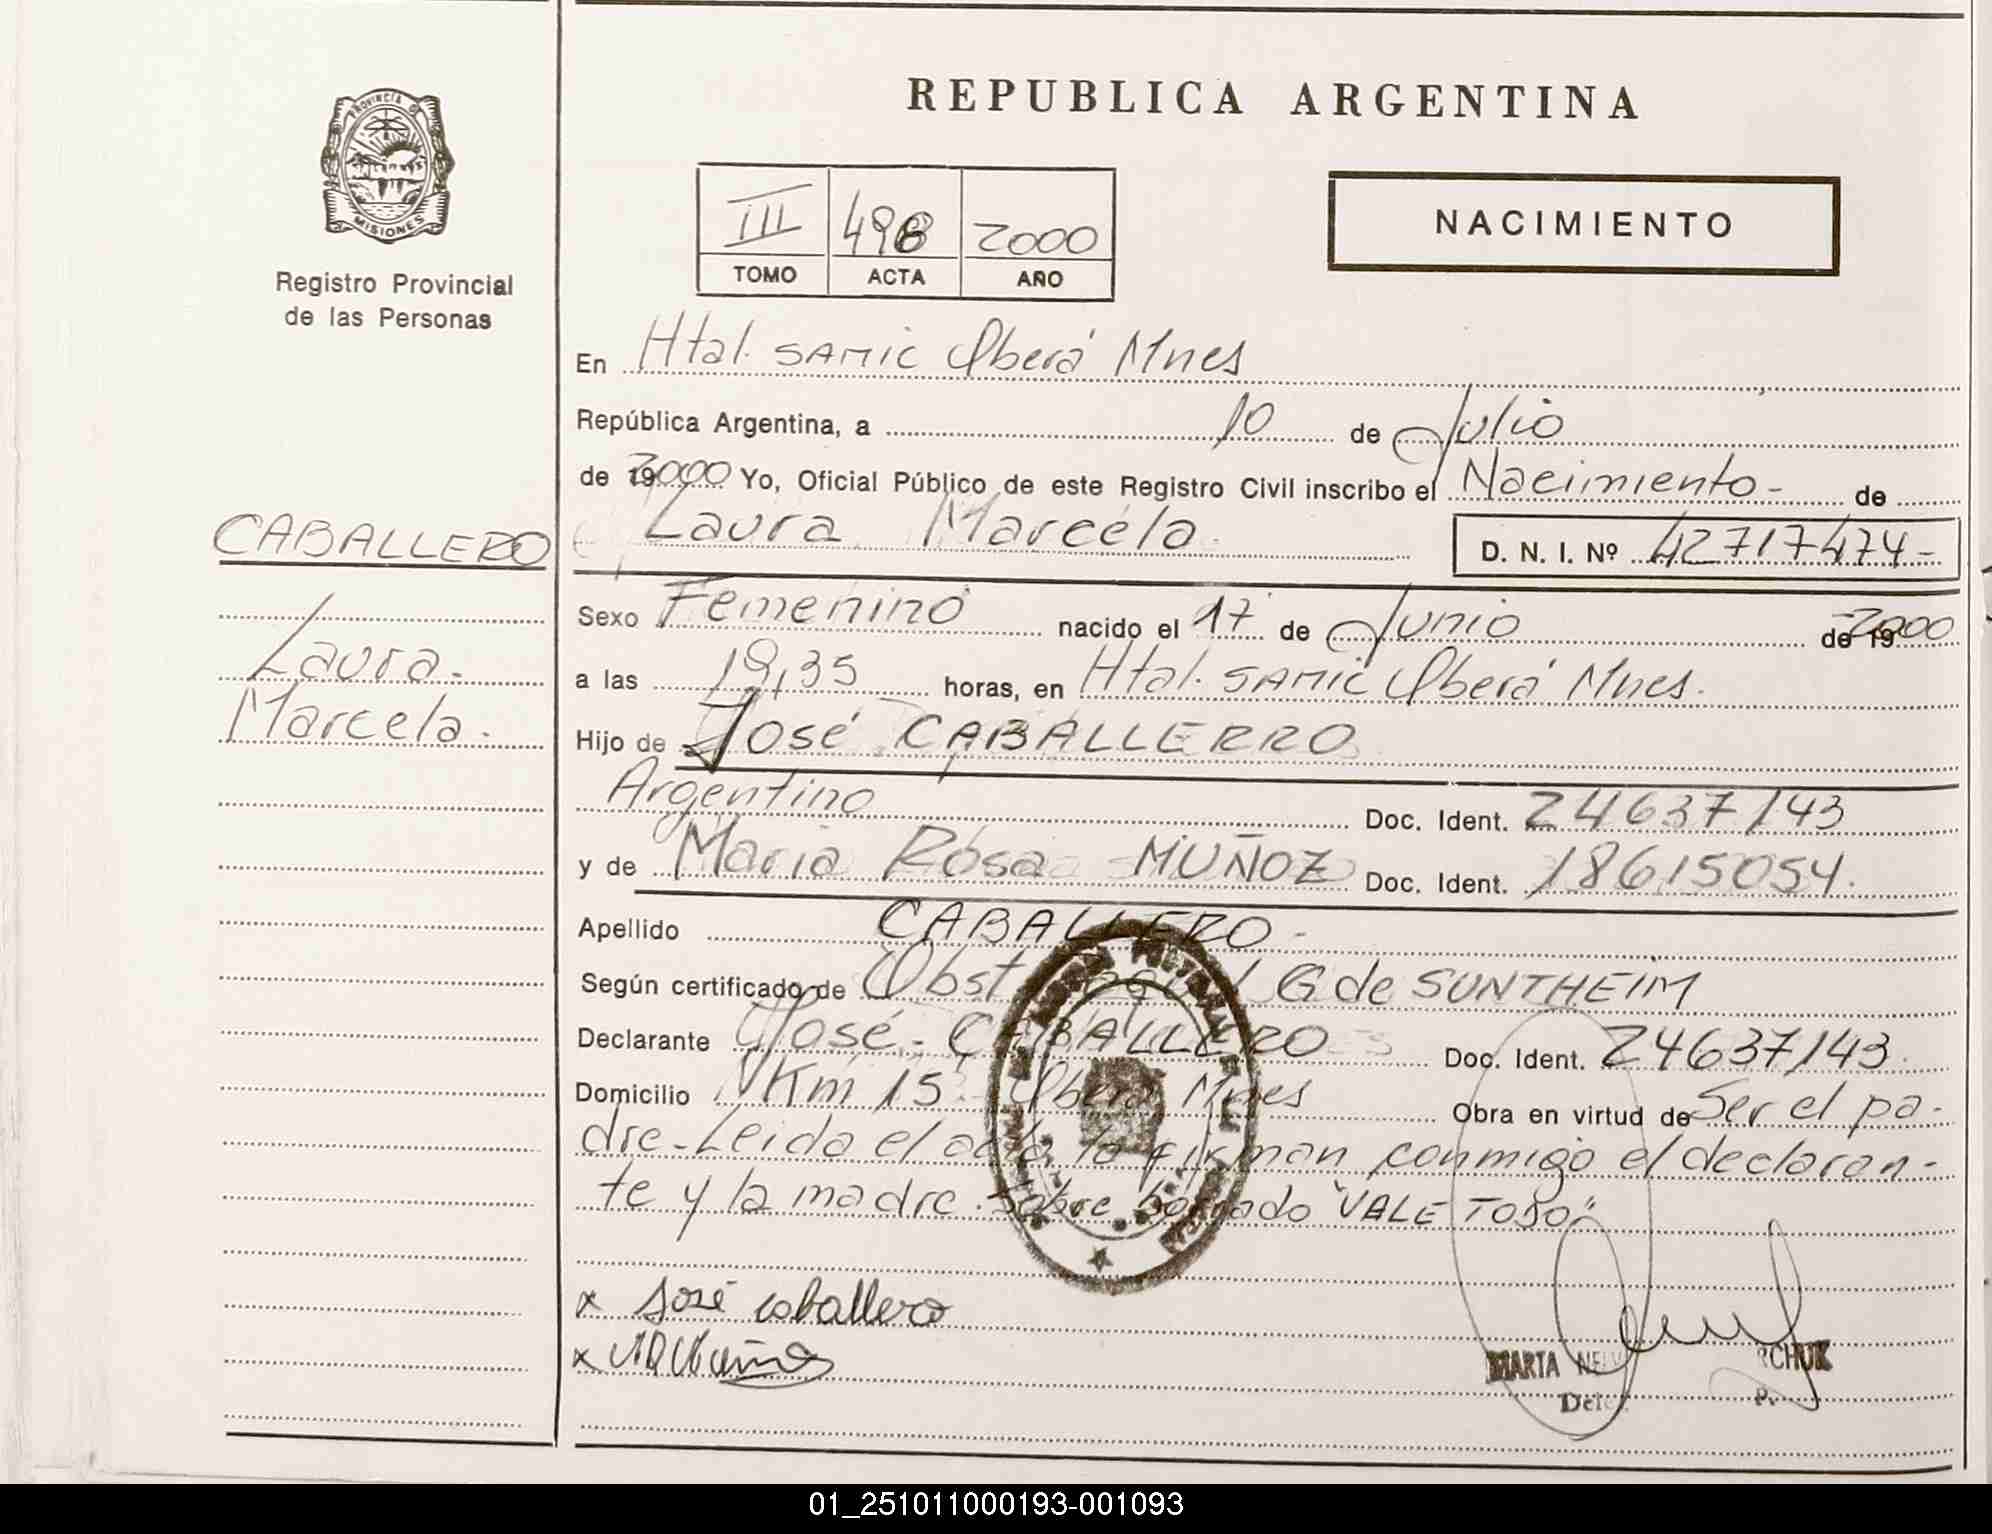 REPUBLICA ARGENTINA
PROVINCIA D
MISIONES
Registro Provincial
de las Personas
III 2000
TOMO ACTA AÑO
NACIMIENTO
En Htal. SAMIC Oberá Mnes
República Argentina, a 10 de Julio
de 2000 Yo, Oficial Público de este Registro Civil inscribo el Nacimiento - de
CABALLERO
Laura Marcela. D. N. I. Nº 42717474-
Sexo Femenino nacido el 17 de Junio de 19 2000
Laura.
a las 19,35 horas, en Htal. SAMIC Oberá Mnes.
Marcela.
Hijo de José CABALLERRO
Argentino Doc. Ident. 24637143
y de Maria Rosa MUÑOZ Doc. Ident. 18615054.
Apellido CABALLERO-
Según certificado de Obst G de SUNTHEIM
Declarante José - CABALLERO Doc. Ident. 24637143.
Domicilio Km 15 - Oberá Mnes Obra en virtud de Ser el pa-
dre - Leida el acta la firman conmigo el declaran-
te y la madre. Sobre borrado "VALE TODO".
x José caballero
x
MARTA RCHUK
01_251011000193-001093